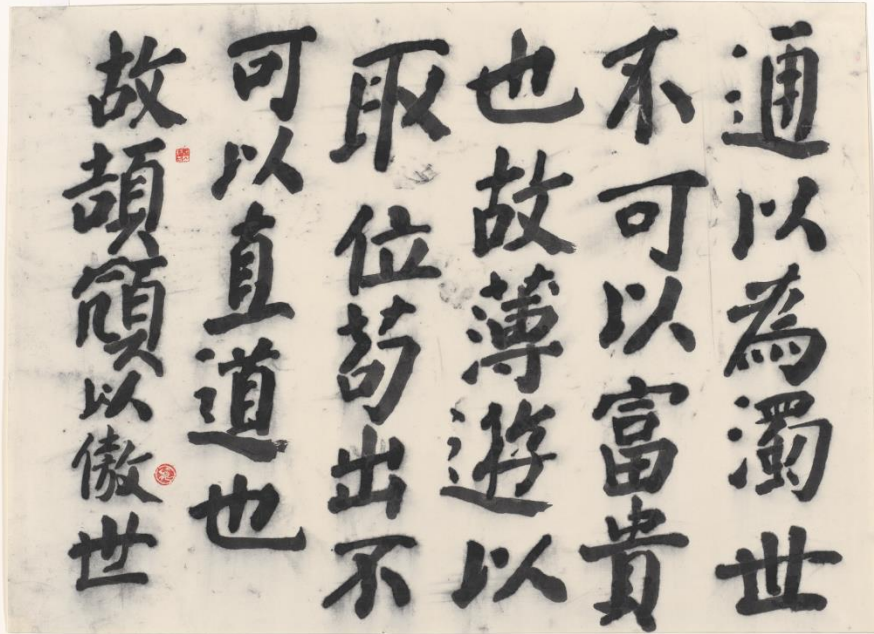 通以為濁世
不可以富貴
也故薄遊以
取位苟出不
可以直道也
故頡頏以傲世